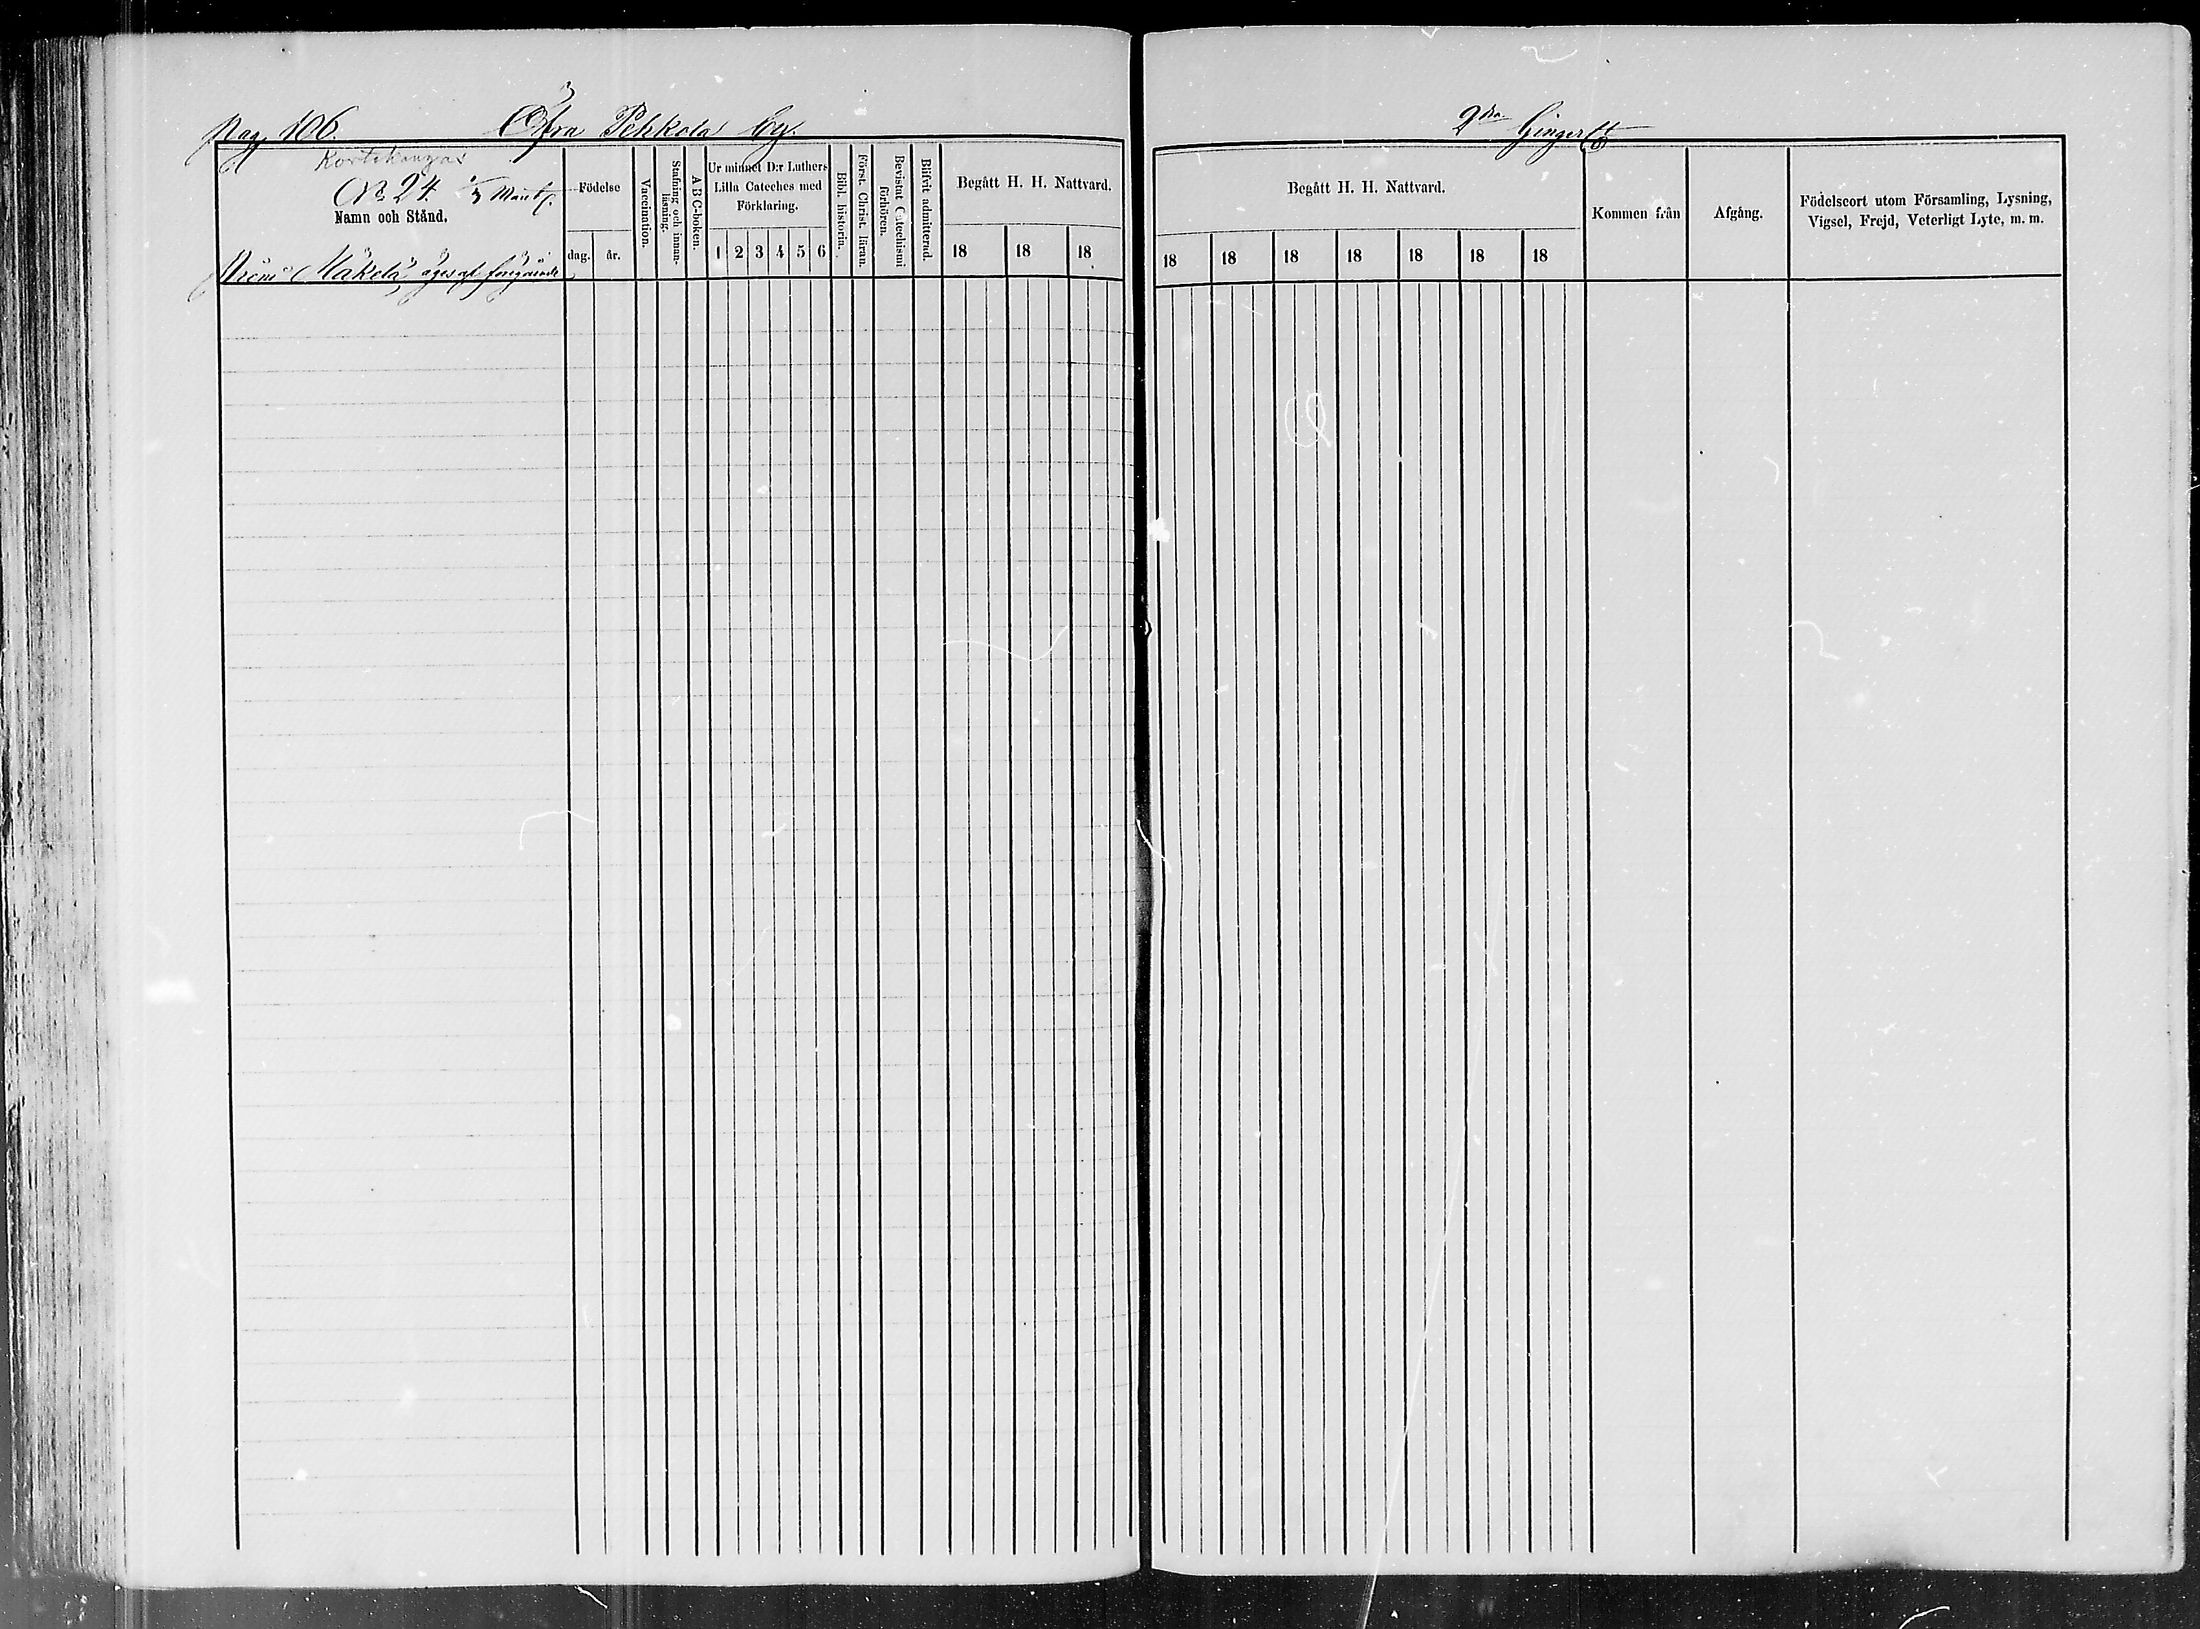 pag 106.
Öfra Pehkola by.
Kortekangas
No 24. 1/3 Mantl.
Namn och Stånd.
Födelse
dag.
år.
Vaccination.
Stafning och innan-
läsning.
A B C-boken.
Ur minnet D:r Luthers
Lilla Cateches med
Förklaring.
1 2 3 4 5 6
Bibl. historia.
Först. Christ. läran.
Bevistat Catechismi
förhören.
Blifvit admitterad.
Begått H. H. Nattvard.
18 18 18
Mäkelä, äges af föregående
2dra
Begått H. H. Nattvard.
18 18 18 18 18 18 18
Kommen från
Afgång.
Födelseort utom Församling, Lysning,
Vigsel, Frejd, Veterligt Lyte, m. m.